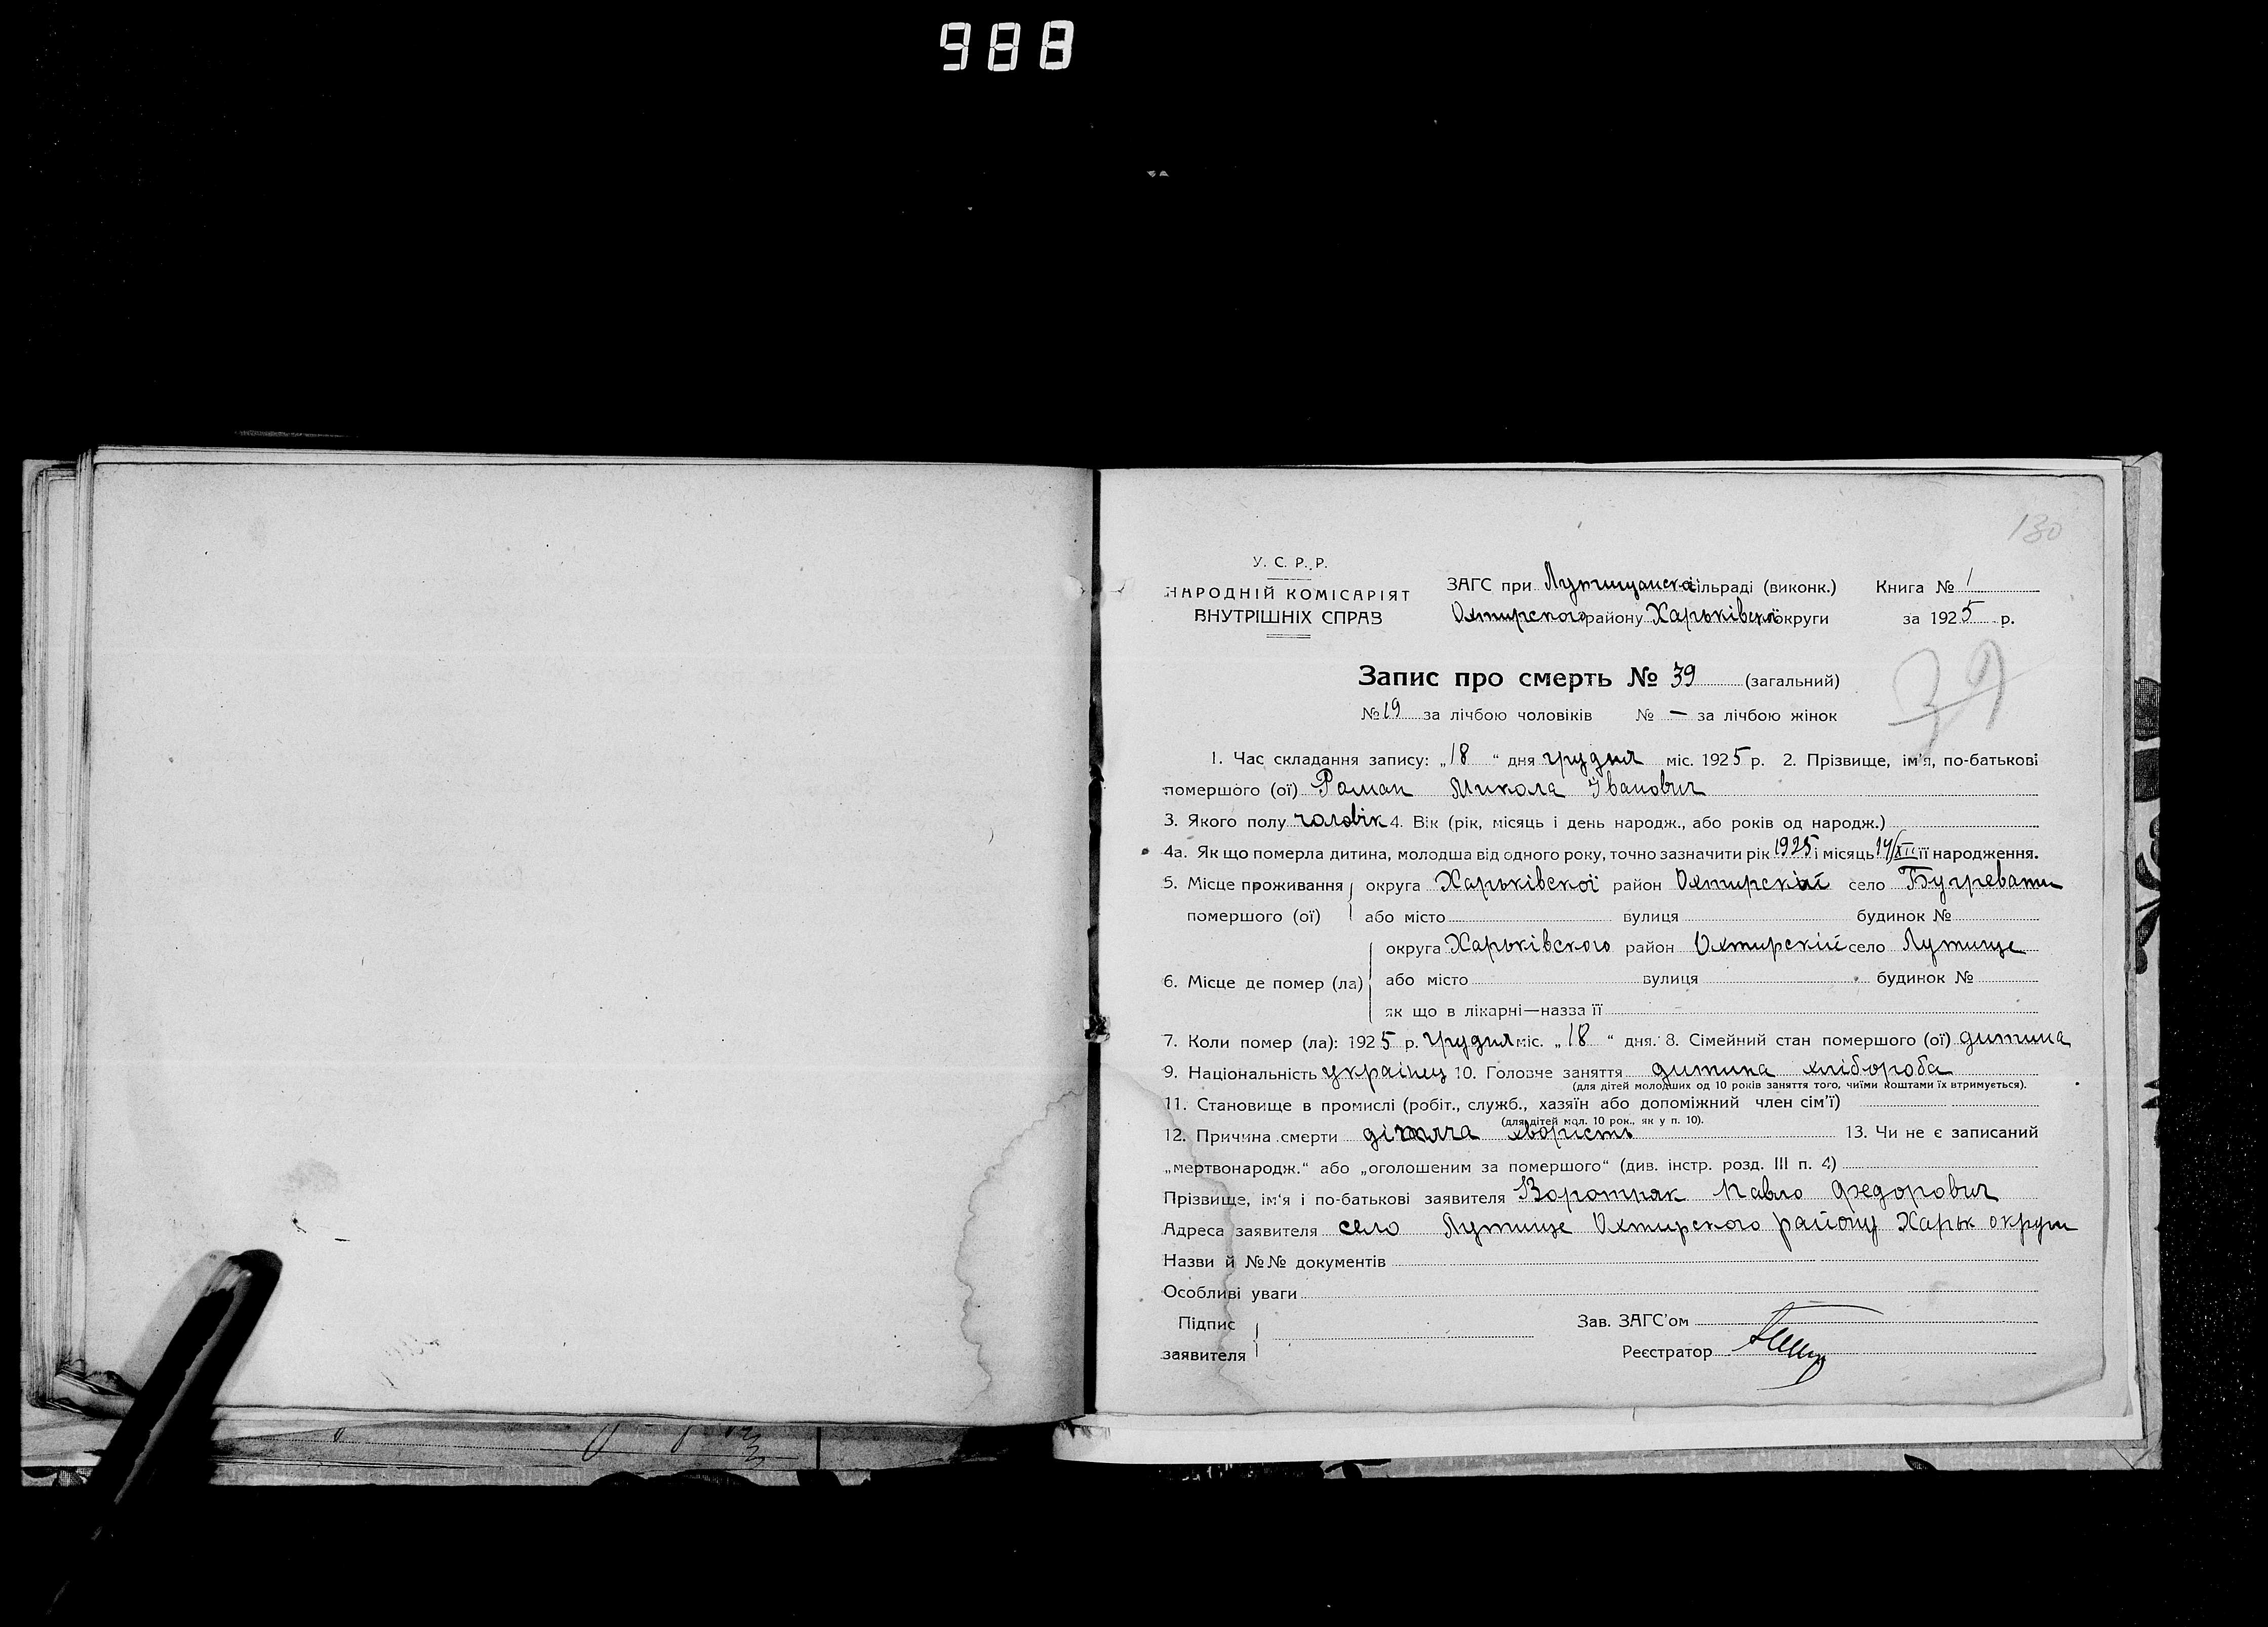 988
130
У. С. Р. Р.
НАРОДНІЙ КОМІСАРІЯТ
ВНУТРІШНІХ СПРАВ
ЗАГС при Лутищанскої сільраді (виконк.) Книга № 1
Охтирского району Харьківскої округи за 1925 р.
Запис про смерть № 39 (загальний)
39
№ 19 за лічбою чоловіків № — за лічбою жінок
1. Час складання запису: „18“ дня грудня міс. 1925 р. 2. Прізвище, ім'я, по-батькові
помершого (ої) Роман Микола Іванович
3. Якого полу чоловік 4. Вік (рік, місяць і день народж., або років од народж.)
4а. Як що померла дитина, молодша від одного року, точно зазначити рік 1925 і місяць 14/XII її народження.
5. Місце проживання помершого (ої) округа Харьківскої район Охтирскій село Бугревати
або місто вулиця будинок №
6. Місце де помер (ла) округа Харьківского район Охтирскій село Лутище
або місто вулиця будинок №
як що в лікарні—назва її
7. Коли помер (ла): 1925 р. грудня міс. „18“ дня. 8. Сімейний стан помершого (ої) дитина
9. Національність українец 10. Головне заняття дитина хлібороба
(для дітей молодших од 10 років заняття того, чиїми коштами їх втримується).
11. Становище в промислі (робіт., служб., хазяїн або допоміжний член сім'ї)
(для дітей мол. 10 рок., як у п. 10).
12. Причина смерти дітяча хвористь 13. Чи не є записаний
„мертвонародж.“ або „оголошеним за помершого“ (див. інстр. розд. III п. 4)
Прізвище, ім'я і по-батькові заявителя Воротряк Павло Федорович
Адреса заявителя село Лутище Охтирского району Харьк округи
Назви й №№ документів
Особливі уваги
Підпис заявителя
Зав. ЗАГС'ом
Реєстратор